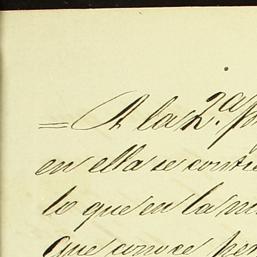 = A la 2ª p
en ella se contie
lo que en la mi
que conoce per